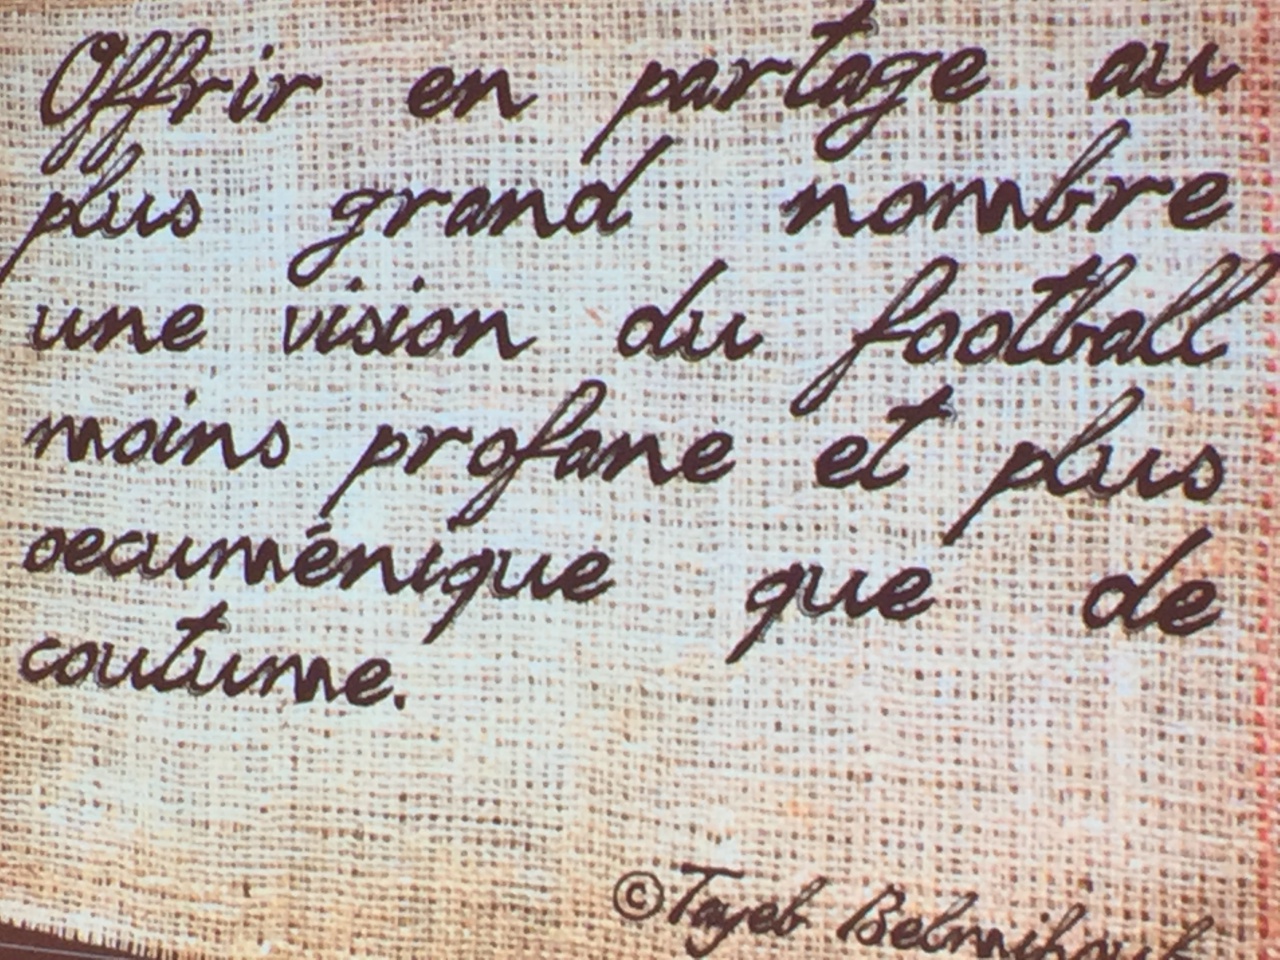 Offrir en partage au
plus grand nombre
une vision du football
moins profane et plus
oecuménique que de
coutume.
©Tayeb Belmihoub